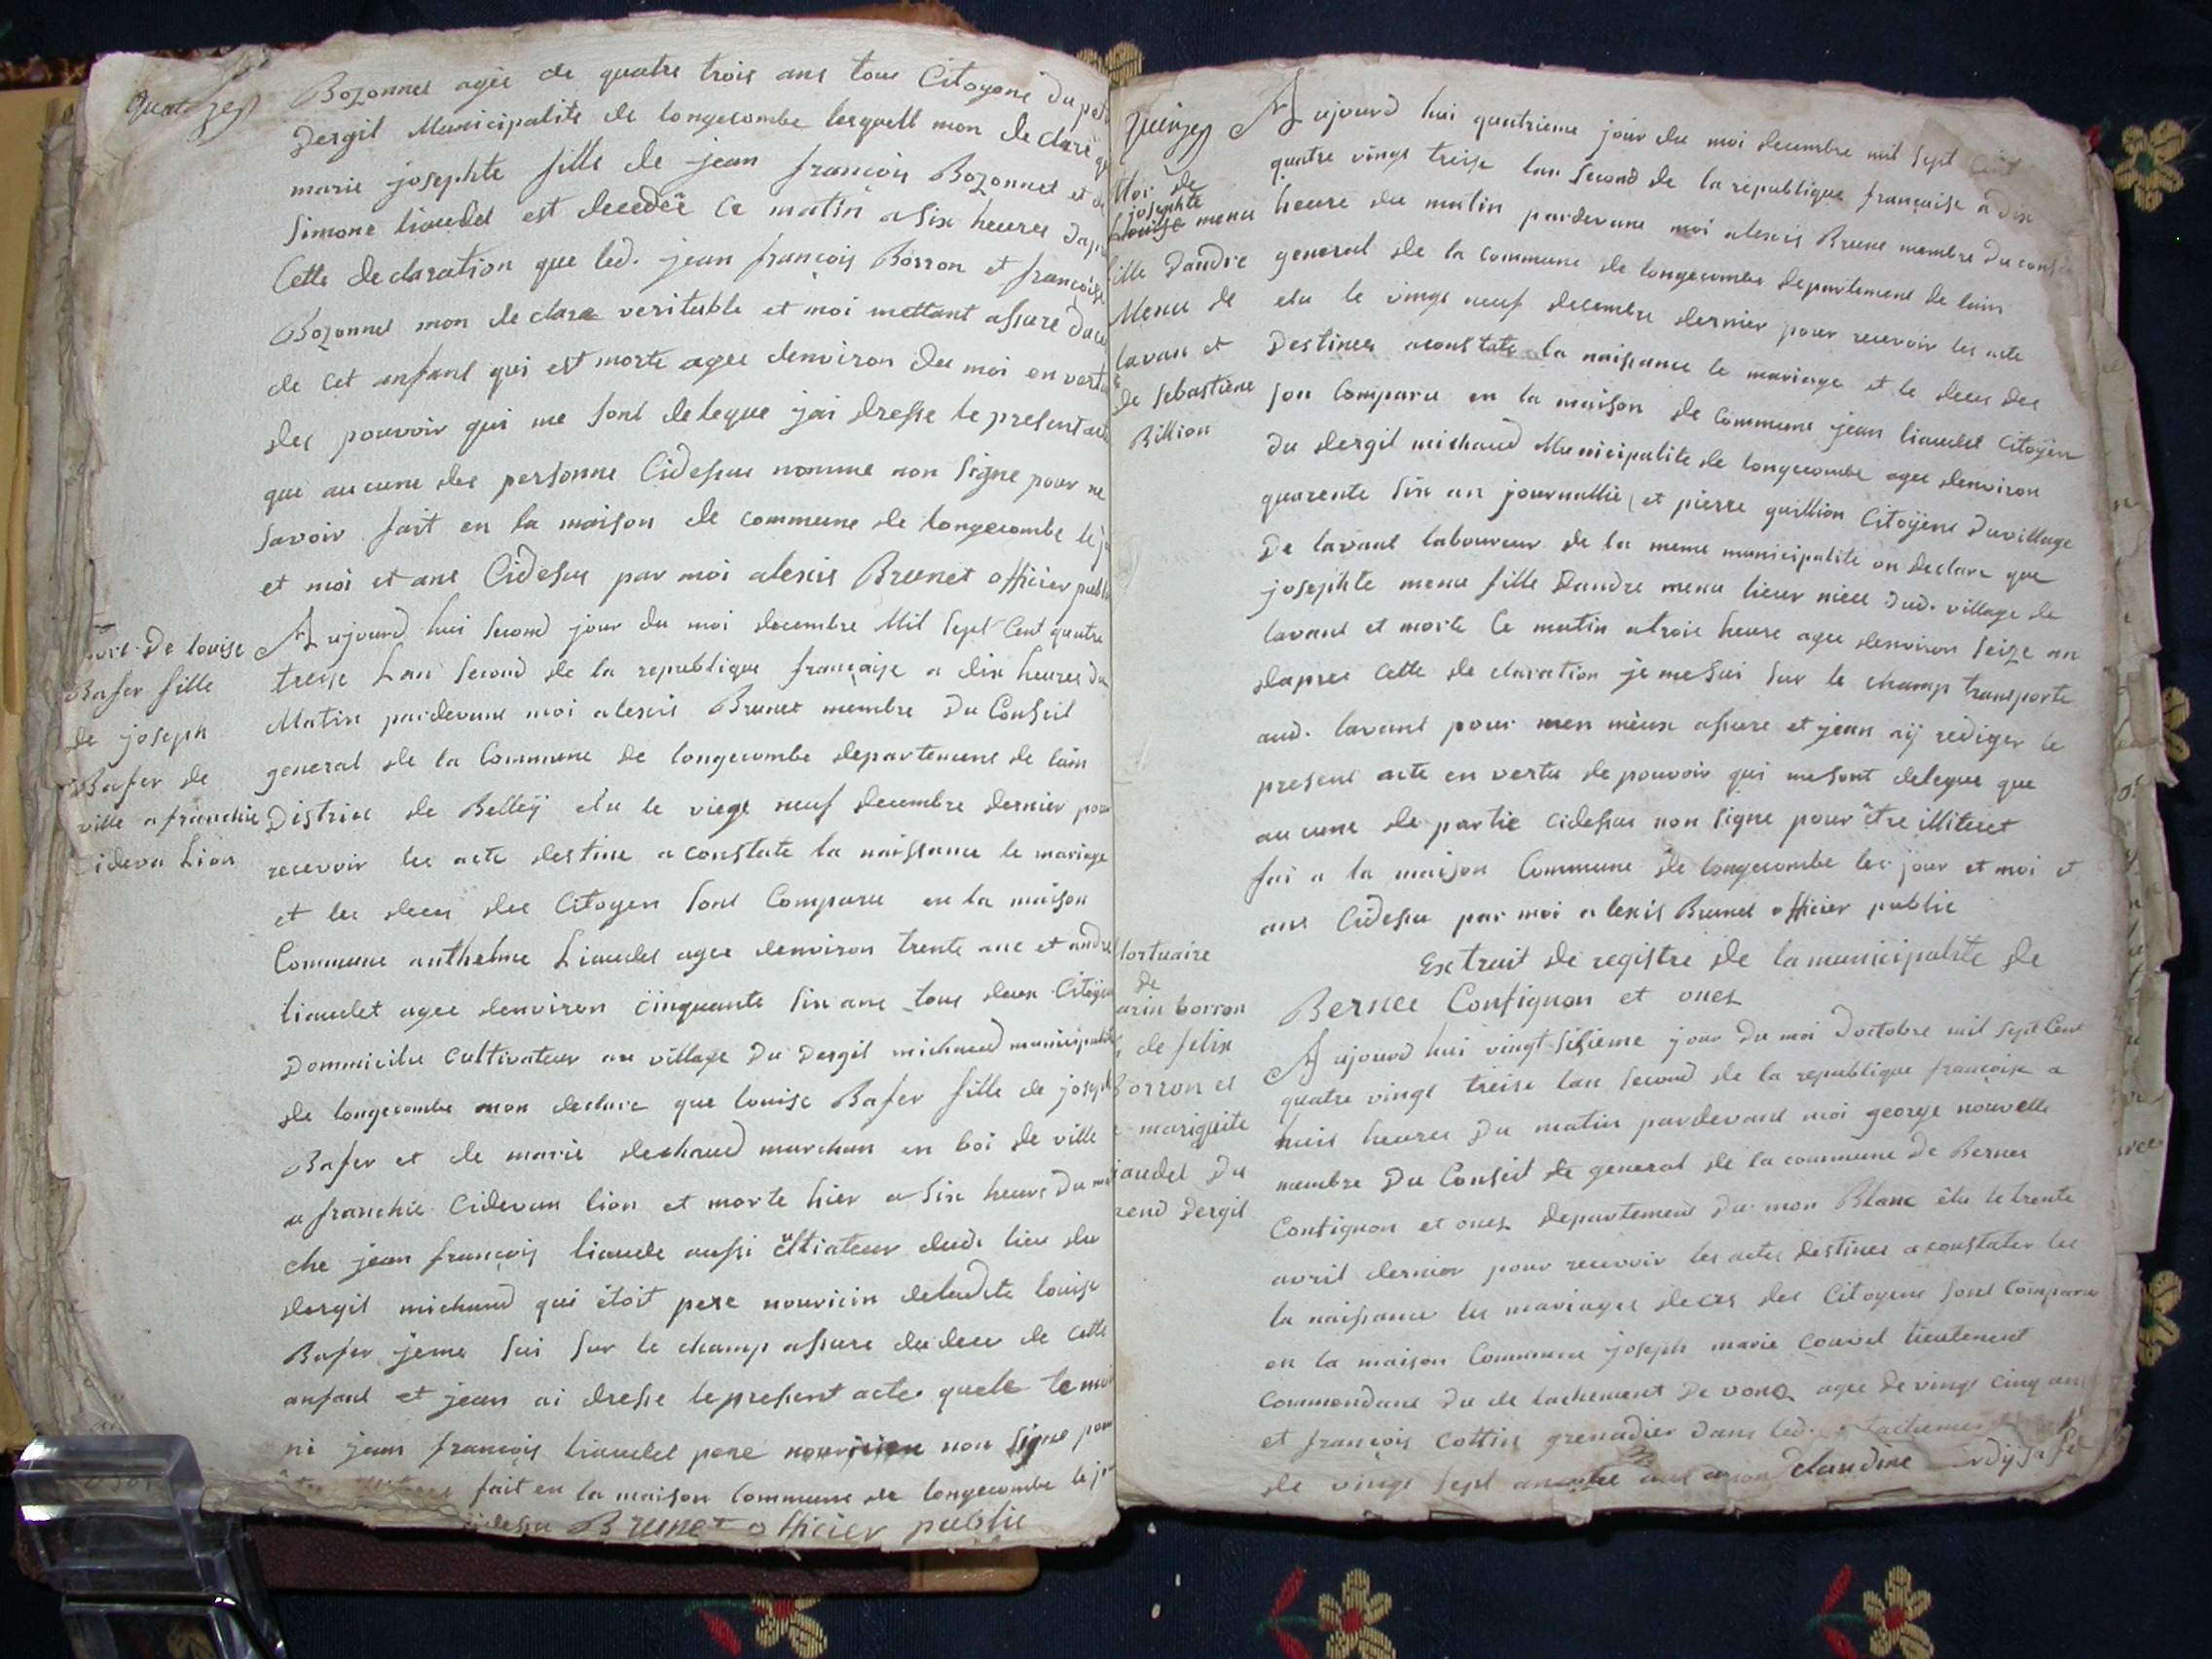 quatorze
Bozonnet agée de quatre trois ans tous Citoyens du
Dergil Municipalité de longecombe lesquell mon declaré
marie josephte fille de jean françois Bozonnet et
Simone liaudet est decedéé ce matin a six heures
Cette declaration que led. jean françois Borron et françoise
Bozonnet mon declare veritable et moi mettant assure
de cet enfant qui est morte agee denviron du moi en vertu
des pouvoir qui me sont delegue jai dresse le present acte
que aucune des personne Cidessus nomme non Signe pour ne
savoir fait en la maison de commune de longecombe le
et moi et ans Cidessus par moi alexis Brunet officier
De louise
Bafer fille
de joseph
Bafer de
ville afranchie
Lion
Aujourd hui second jour du moi decembre Mil Sept Cent quatre
treise Lan second de la republique françaïse a dix heures du
Matin pardevant moi alexis Brunet membre Du Conseil
general de la Commune de longecombe departement de lain
District de Belley elu le viegt neuf decembre dernier pour
recevoir les acte destine a constate la naissance le mariage
et les deces des Citoyen sont Comparu en la maison
Commune anthelme Liaudet agee denviron trente ans et andre
liaudet agee denviron cinquante six ans tous deux Citoyen
Dommicilie cultivateur au village Du Dergil michaud municipalite
de longecombe mon declare que louise Bafer fille de joseph
Bafer et de marie dechaud marchan en boi de ville
a franchie Cidevan lion et morte hier a six heure Du
che jean françois liaude aussi cultiateur dud. lieu du
dergil michaud qui étoit pere nouricin deladite louise
Bafer jeme sui sur le champ assure du dece de cette
anfant et jean ai dresse lepresent acte que le
ni jean françois liaudet pere nouricien non signe pour
fait en la maison Commune de longecombe le
Brunet officier public
Quinze
josephte
menu
fille Dandre
Menu de
lavan et
de sebastiene
Billion
Aujourd hui quatrieme jour du moi decembre mil sept Cent
quatre vingt treise lan second de la république française a dix
heure du matin pardevant moi alexis Brune membre Du
general de la commune de longecombe departement de lain
elu le vingt neuf decembre dernier pour recevoir les acte
Destinee aconstate la naissance le mariage et le deces des
son Comparu en la maison de Commune jean liaudet Citoyen
Du dergil michaud Municipalite de longecombe agee denviron
quarente six an journallie et pierre guillion Citoÿens Du village
De lavant laboureur de la meme municipalite on declare que
josephte menu fille Dandre menu dud. village de
lavant et morte ce matin atroie heure agee denviron seize an
dapres cette declaration je me sui sur le champ transporte
aud. lavant pour men mieux assure et jean aij rediger le
present acte en vertu de pouvoir qui mesont delegue que
aucune de partie cidessus non signe pour être illiteret
fai a la maison Commune de longecombe les jour et moi et
ans Cidessu par moi alexis Brunet officier public
de
borron
de felix
Borron et
mariguite
Du
Dergil
Extrait de registre de la municipalite de
Bernee Confignon et onex
Aujourd hui vingt sisieme jour Du moi Doctobre mil sept Cent
quatre vingt treise lan second de la republique françoise a
huit heures Du matin pardevant moi george nouvelle
membre Du Conseil de general de la commune De Bernee
Confignon et onex departement Du mon Blanc élu le trente
avril dernier pour recevoir les actes destinee a constater les
la naissance les mariages deces des Citoyens sont Comparu
en la maison Commune joseph marie couvel lieutenent
commendant Du detachement De agee De vingt cinq ans
et françois cottin grenadier Dans led.
de vingt sept claudine